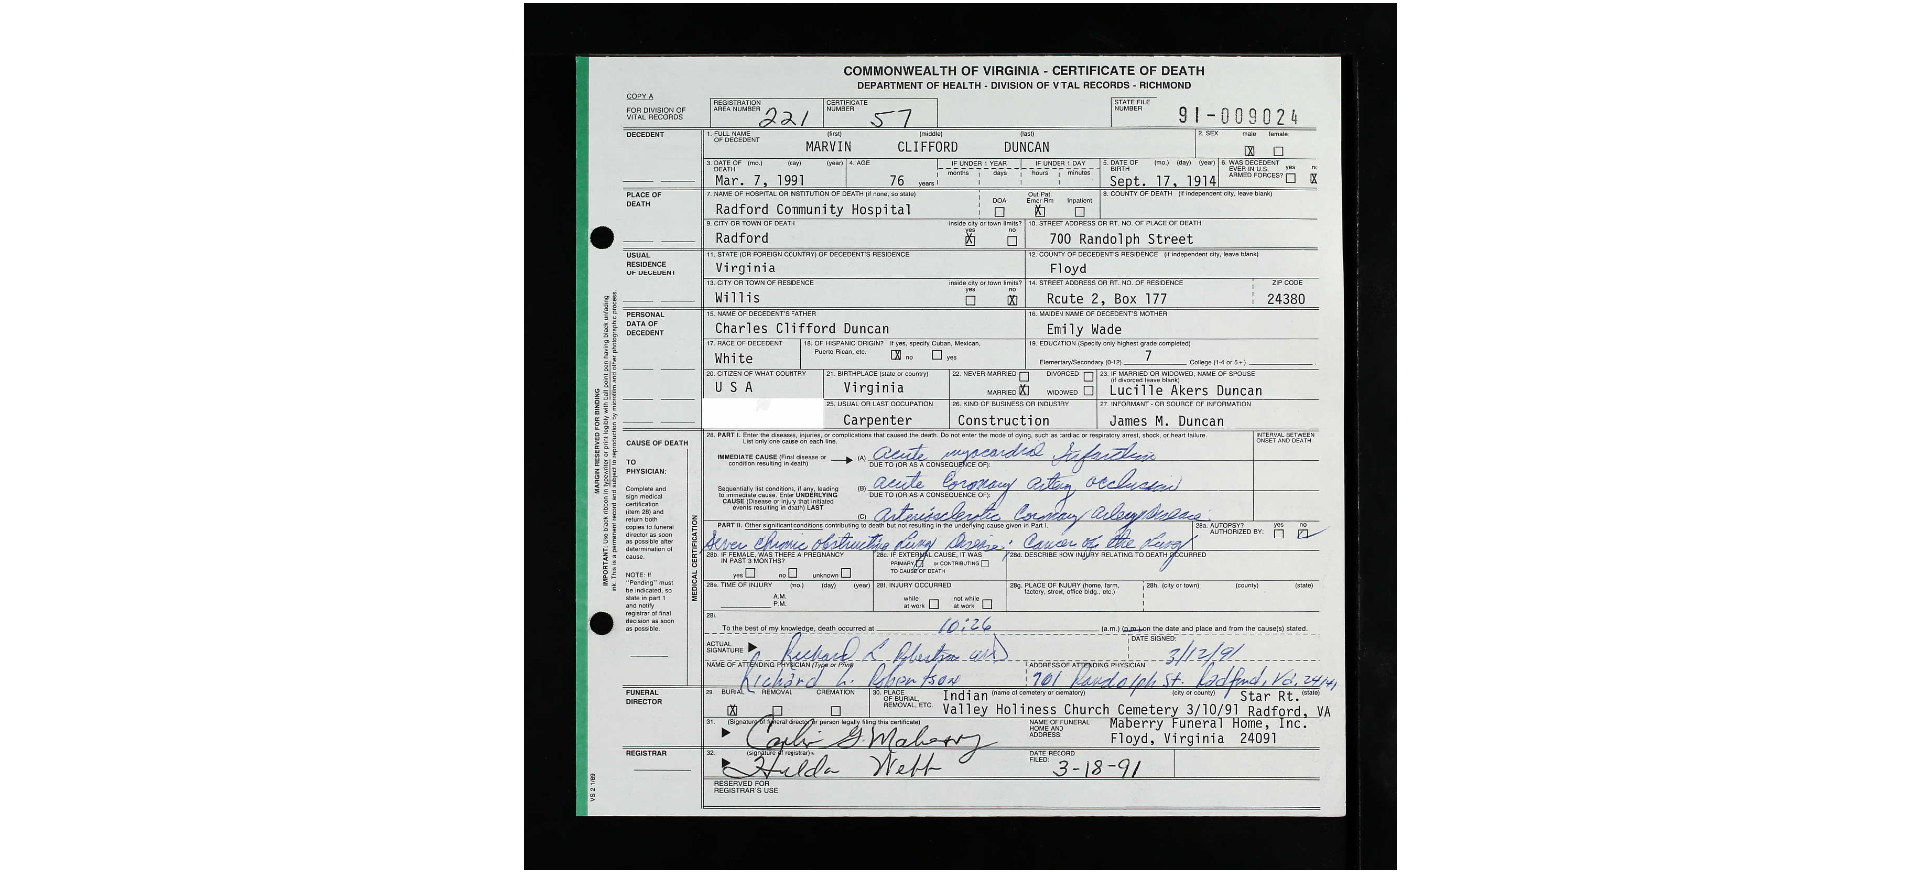 COMMONWEALTH OF VIRGINIA - CERTIFICATE OF DEATH
DEPARTMENT OF HEALTH - DIVISION OF VITAL RECORDS - RICHMOND
COPY A
FOR DIVISION OF VITAL RECORDS
REGISTRATION AREA NUMBER 221
CERTIFICATE NUMBER 57
STATE FILE NUMBER 91-009024
DECEDENT
1. FULL NAME OF DECEDENT (first) (middle) (last)
MARVIN CLIFFORD DUNCAN
2. SEX male female
X
3. DATE OF DEATH (mo.) (day) (year)
Mar. 7, 1991
4. AGE
76 years
IF UNDER 1 YEAR months days
IF UNDER 1 DAY hours minutes
5. DATE OF BIRTH (mo.) (day) (year)
Sept. 17, 1914
6. WAS DECEDENT EVER IN U.S. ARMED FORCES? yes no
X
PLACE OF DEATH
7. NAME OF HOSPITAL OR INSTITUTION OF DEATH (if none, so state)
Radford Community Hospital
DOA
Out Pat. Emer Rm X
Inpatient
8. COUNTY OF DEATH (if independent city, leave blank)
9. CITY OR TOWN OF DEATH
Radford
inside city or town limits? yes no
X
10. STREET ADDRESS OR RT. NO. OF PLACE OF DEATH
700 Randolph Street
USUAL RESIDENCE OF DECEDENT
11. STATE (OR FOREIGN COUNTRY) OF DECEDENT'S RESIDENCE
Virginia
12. COUNTY OF DECEDENT'S RESIDENCE (if independent city, leave blank)
Floyd
13. CITY OR TOWN OF RESIDENCE
Willis
inside city or town limits? yes no
X
14. STREET ADDRESS OR RT. NO. OF RESIDENCE
Rcute 2, Box 177
ZIP CODE
24380
PERSONAL DATA OF DECEDENT
15. NAME OF DECEDENT'S FATHER
Charles Clifford Duncan
16. MAIDEN NAME OF DECEDENT'S MOTHER
Emily Wade
17. RACE OF DECEDENT
White
18. OF HISPANIC ORIGIN? If yes, specify Cuban, Mexican, Puerto Rican, etc. X no yes
19. EDUCATION (Specify only highest grade completed)
Elementary/Secondary (0-12) 7 College (1-4 or 5+)
20. CITIZEN OF WHAT COUNTRY
U S A
21. BIRTHPLACE (state or country)
Virginia
22. NEVER MARRIED DIVORCED
MARRIED X WIDOWED
23. IF MARRIED OR WIDOWED, NAME OF SPOUSE (if divorced leave blank)
Lucille Akers Duncan
25. USUAL OR LAST OCCUPATION
Carpenter
26. KIND OF BUSINESS OR INDUSTRY
Construction
27. INFORMANT - OR SOURCE OF INFORMATION
James M. Duncan
CAUSE OF DEATH
TO PHYSICIAN:
Complete and sign medical certification (item 28) and return both copies to funeral director as soon as possible after determination of cause.
NOTE: If "Pending" must be indicated, so state in part 1 and notify registrar of final decision as soon as possible.
MEDICAL CERTIFICATION
28. PART I. Enter the diseases, injuries, or complications that caused the death. Do not enter the mode of dying, such as cardiac or respiratory arrest, shock, or heart failure.
List only one cause on each line.
INTERVAL BETWEEN ONSET AND DEATH
IMMEDIATE CAUSE (Final disease or condition resulting in death)
(A) acute myocardial Infarction
DUE TO (OR AS A CONSEQUENCE OF):
Sequentially list conditions, if any, leading to immediate cause. Enter UNDERLYING CAUSE (Disease or injury that initiated events resulting in death) LAST
(B) acute Coronary artery occlusion
DUE TO (OR AS A CONSEQUENCE OF):
(C) Arteriosclerotic Coronary artery disease
PART II. Other significant conditions contributing to death but not resulting in the underlying cause given in Part I.
Sever Chronic obstructing Lung Disease. Cancer of the Lung
28a. AUTOPSY? AUTHORIZED BY: yes no
28b. IF FEMALE, WAS THERE A PREGNANCY IN PAST 3 MONTHS?
yes no unknown
28c. IF EXTERNAL CAUSE, IT WAS
PRIMARY or CONTRIBUTING
TO CAUSE OF DEATH
28d. DESCRIBE HOW INJURY RELATING TO DEATH OCCURRED
28e. TIME OF INJURY (mo.) (day) (year)
A.M.
P.M.
28f. INJURY OCCURRED
while at work not while at work
28g. PLACE OF INJURY (home, farm, factory, street, office bldg., etc.)
28h. (city or town) (county) (state)
28i.
To the best of my knowledge, death occurred at 10:26 (a.m.) (p.m.) on the date and place and from the cause(s) stated.
ACTUAL SIGNATURE Richard L Robertson MD
DATE SIGNED:
3/12/91
NAME OF ATTENDING PHYSICIAN (Type or Print)
Richard L. Robertson
ADDRESS OF ATTENDING PHYSICIAN
701 Randolph St. Radford, Va. 24141
FUNERAL DIRECTOR
29. BURIAL REMOVAL CREMATION
X
30. PLACE OF BURIAL, REMOVAL, ETC. (name of cemetery or crematory) (city or county) (state)
Indian Star Rt.
Valley Holiness Church Cemetery 3/10/91 Radford, VA
31. (Signature of funeral director or person legally filing this certificate)
Carlin G. Maberry
NAME OF FUNERAL HOME AND ADDRESS:
Maberry Funeral Home, Inc.
Floyd, Virginia 24091
REGISTRAR
32. (signature of registrar)
Hulda Webb
DATE RECORD FILED:
3-18-91
RESERVED FOR REGISTRAR'S USE
MARGIN RESERVED FOR BINDING
IMPORTANT: Use black ribbon in typewriter or print legibly with ball point pen having black unfading ink. This is a permanent record and subject to reproduction by microfilm and other photographic process.
VS 2 1/89